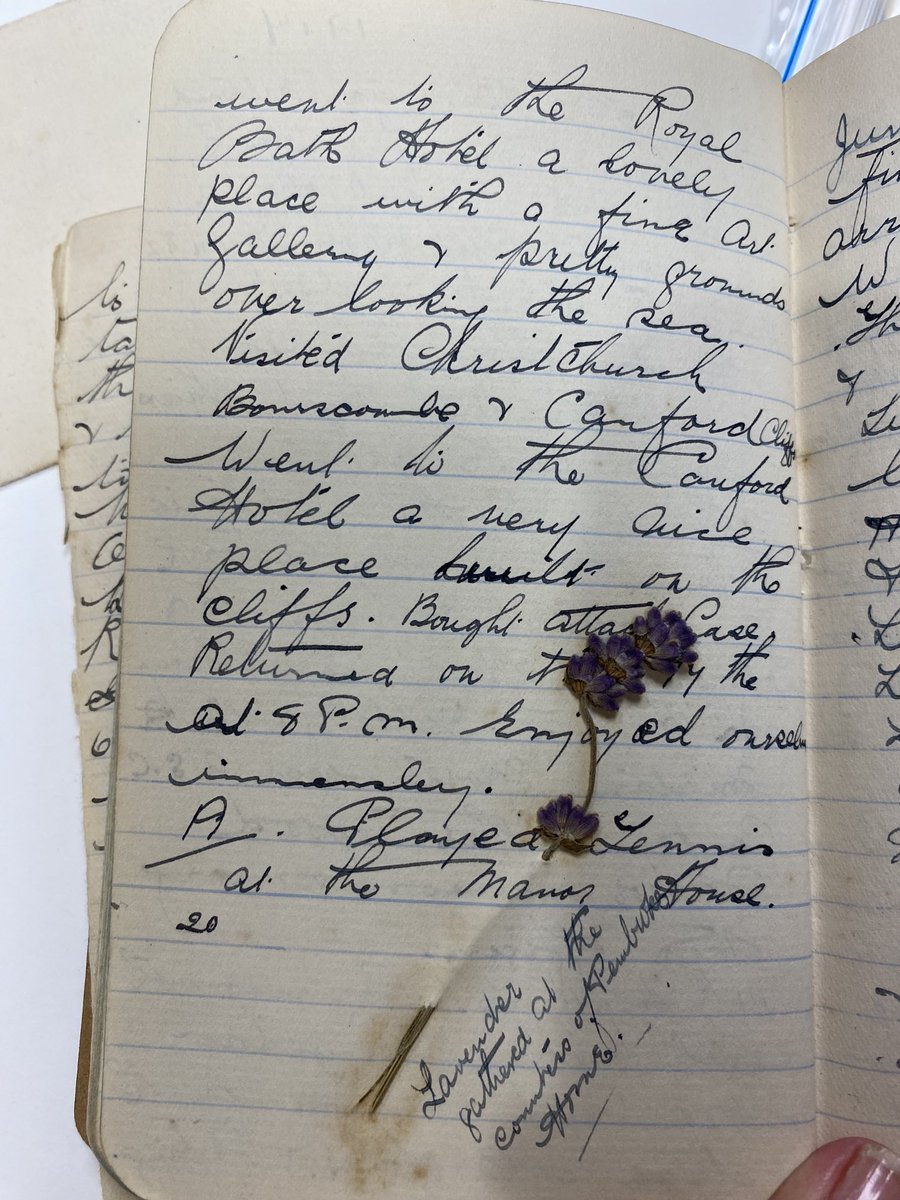 went to the Royal
Bath Hotel a lovely
place with a fine Art
Gallery & pretty grounds
over looking the sea.
Visited Christchurch
Bourscombe & Canford Cliffs
Went to the Canford
Hotel a very nice
place built on the
cliffs. Bought Case.
Returned on the
at 8 P.m. Enjoyed ourselves
immensley.
A. Played Tennis
at the Manor House.
20
Lavender
gathered at the
countess of Pembrokes
Home.